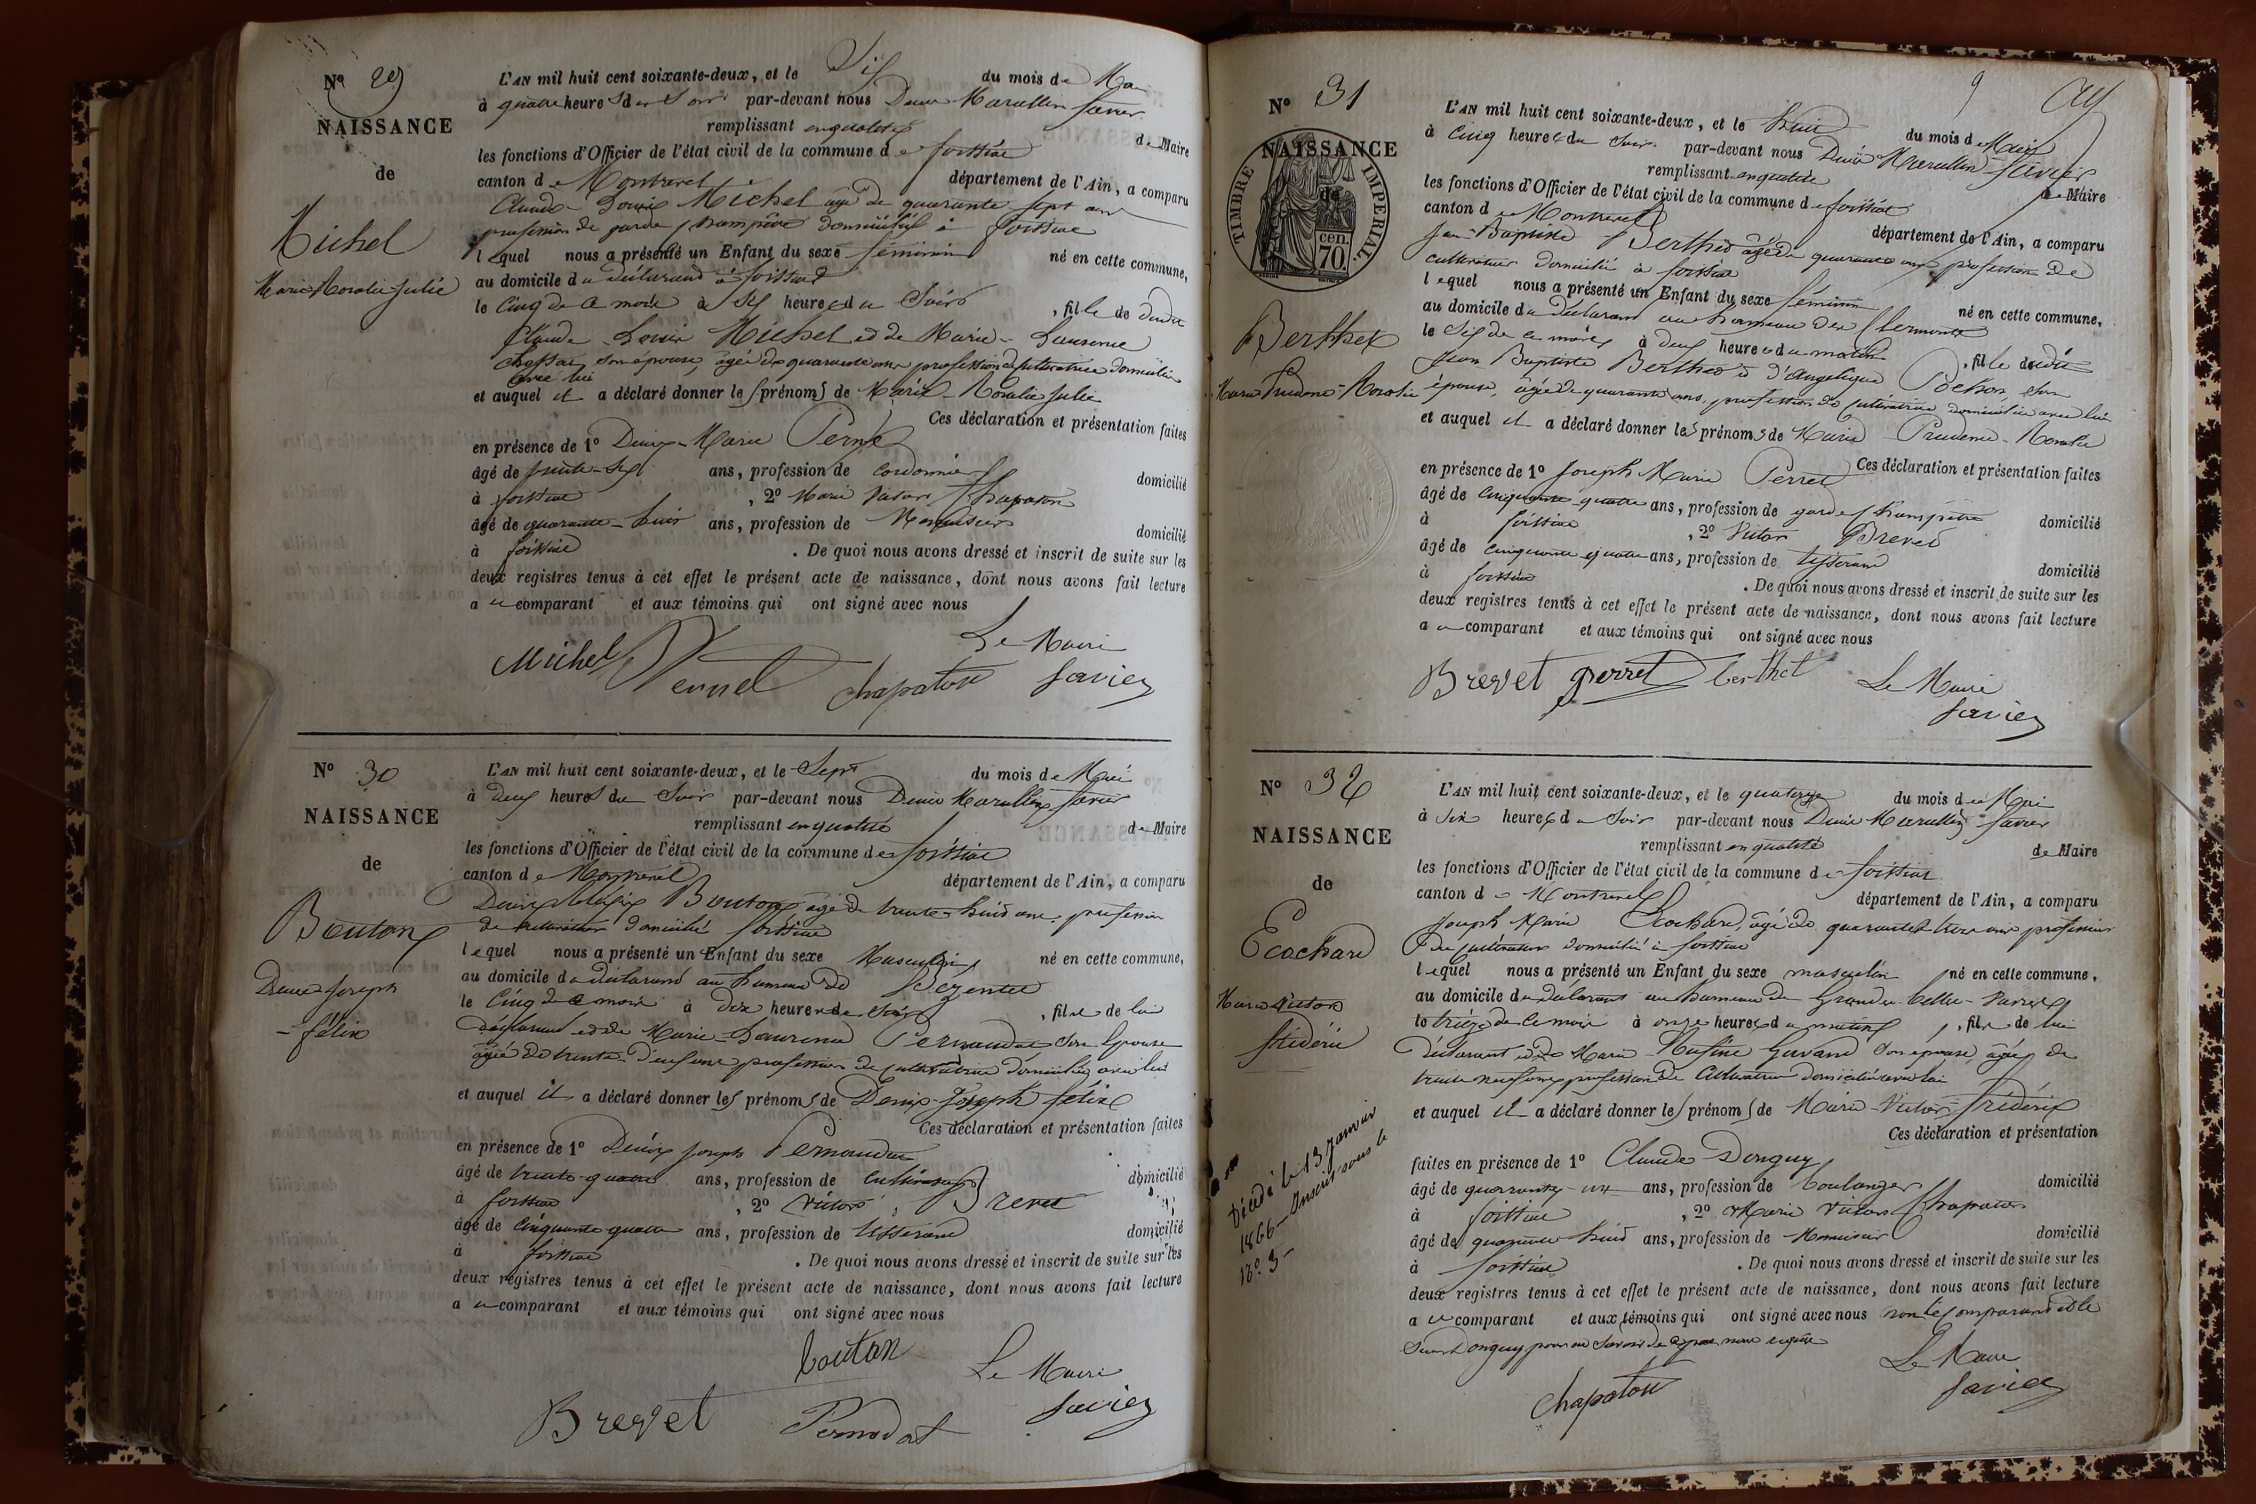 Nº 29
NAISSANCE
de
Michel
Marie Rosalie Julie
L'AN mil huit cent soixante-deux, et le Six du mois de Mai
à quatre heures du Soir par-devant nous Denis Marcellin Savier
remplissant en qualité de Maire
les fonctions d'Officier de l'état civil de la commune de foissiat
canton de Montrevel département de l'Ain, a comparu
Claude Louis Michel agé de quarante sept ans
profession de garde champêtre domicilié à foissiat
lequel nous a présenté un Enfant du sexe féminin né en cette commune,
au domicile du déclarant à foissiat
le Cinq de ce mois à Six heures du Soir , fille de dudit
Claude Louis Michel et de Marie Laurence
son épouse, agée de quarante ans profession de cultivatrice domiciliée
avec lui
et auquel il a déclaré donner les prénoms de Marie Rosalie Julie
Ces déclaration et présentation faites
en présence de 1º Denis Marie
âgé de trente-six ans, profession de cordonnier domicilié
à foissiat , 2º Marie Victor Chapaton
âgé de quarante-huit ans, profession de Menuisier domicilié
à foissiat . De quoi nous avons dressé et inscrit de suite sur les
deux registres tenus à cet effet le présent acte de naissance, dont nous avons fait lecture
au comparant et aux témoins qui ont signé avec nous
Le Maire
Michel chapaton Savier
Nº 30
NAISSANCE
de
Bouton
Denis Joseph
félix
L'AN mil huit cent soixante-deux, et le Sept du mois de Mai
à deux heures du Soir par-devant nous Denis Marcellin Savier
remplissant en qualité de Maire
les fonctions d'Officier de l'état civil de la commune de foissiat
canton de Montrevel département de l'Ain, a comparu
Denis Bouton agé de trente-huit ans, profession
de cultivateur domicilié foissiat
lequel nous a présenté un Enfant du sexe Masculin né en cette commune,
au domicile du déclarant au hameau de Bezentet
le Cinq de ce mois à dix heures du Soir , fils de lui
déclarant et de Marie-Laurence Pernaudat son épouse
agée de trente-deux ans profession de cultivatrice domiciliée avec lui
et auquel il a déclaré donner les prénoms de Denis-Joseph félix
Ces déclaration et présentation faites
en présence de 1º Denis Joseph Pernaudat
âgé de trente-quatre ans, profession de Cultivateur domicilié
à foissiat , 2º Victor Brevet
âgé de cinquante quatre ans, profession de tisserand domicilié
à foissiat . De quoi nous avons dressé et inscrit de suite sur les
deux registres tenus à cet effet le présent acte de naissance, dont nous avons fait lecture
au comparant et aux témoins qui ont signé avec nous
bouton Le Maire
Brevet Pernodat Savier
9
Nº 31
NAISSANCE
de
TIMBRE IMPERIAL.
70 cen.
Berthet
Marie Prudence-Rosalie
L'AN mil huit cent soixante-deux, et le huit du mois de Mai
à Cinq heures du Soir par-devant nous Denis Marcellin Savier
remplissant en qualité de Maire
les fonctions d'Officier de l'état civil de la commune de foissiat
canton de Montrevel département de l'Ain, a comparu
Jean-Baptiste Berthet agé de quarante ans profession de
cultivateur domicilié à foissiat
lequel nous a présenté un Enfant du sexe féminin né en cette commune,
au domicile du déclarant au hameau des Clermonts
le Six de ce mois à deux heures du matin , fille dudit
Jean Baptiste Berthet et d'Angelique Pochon, son
épouse, agée de quarante ans, profession de cultivatrice domiciliée avec lui
et auquel il a déclaré donner les prénoms de Marie Prudence-Rosalie
Ces déclaration et présentation faites
en présence de 1º Joseph Marie Perret
âgé de cinquante quatre ans, profession de garde champêtre domicilié
à foissiat , 2º Victor Brevet
âgé de cinquante quatre ans, profession de tisserand domicilié
à foissiat . De quoi nous avons dressé et inscrit de suite sur les
deux registres tenus à cet effet le présent acte de naissance, dont nous avons fait lecture
au comparant et aux témoins qui ont signé avec nous
Brevet perret berthet Le Maire
Savier
Nº 32
NAISSANCE
de
Ecochard
Marie Victor
frédéric
Décédé le 13 Janvier
1866 - Inscrit sous le
Nº 3 -
L'AN mil huit cent soixante-deux, et le quatorze du mois de Mai
à six heures du Soir par-devant nous Denis Marcellin Savier
remplissant en qualité de Maire
les fonctions d'Officier de l'état civil de la commune de foissiat
canton de Montrevel département de l'Ain, a comparu
Joseph Marie Ecochard, agé de quarante trois ans profession
de cultivateur domicilié à foissiat
lequel nous a présenté un Enfant du sexe masculin né en cette commune,
au domicile du déclarant au hameau de Grande
le treize de ce mois à onze heures du matin , fils de lui
déclarant et de Marie Guvand son épouse, agée de
trente neuf ans profession de Cultivatrice domiciliée avec lui
et auquel il a déclaré donner les prénoms de Marie-Victor frédéric
Ces déclaration et présentation
faites en présence de 1º Claude Donguy
âgé de quarante un ans, profession de boulanger domicilié
à foissiat , 2º Marie Victor Chapaton
âgé de quarante huit ans, profession de Menuisier domicilié
à foissiat . De quoi nous avons dressé et inscrit de suite sur les
deux registres tenus à cet effet le présent acte de naissance, dont nous avons fait lecture
au comparant et aux témoins qui ont signé avec nous non le comparant et le
Sieur Donguy pour ne savoir de ce par nous enquis
Le Maire
chapaton Savier